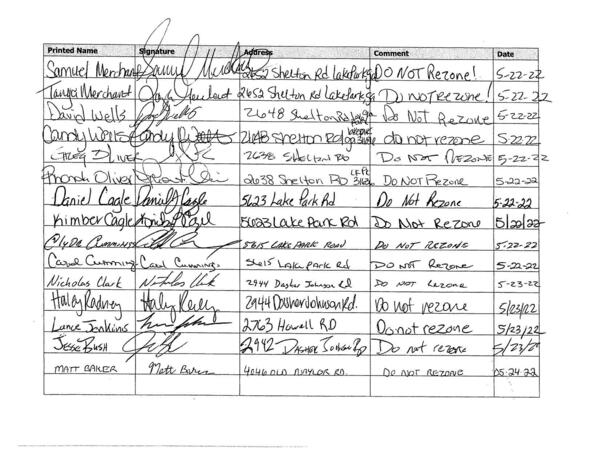 Printed Name Signature Address Comment Date
Samuel Merchant Samuel Merchant 2652 Shelton Rd Lake Park Ga DO NOT Rezone! 5-22-22
Tanya Merchant Tanya Merchant 2652 Shelton Rd Lake Park, Ga Do not rezone! 5-22-22
David Wells 2648 Shelton Rd Do Not Rezone 5-22-22
Candy Wells Candy Wells 2648 Shelton Rd Lake Park ga 31636 do not rezone 5-22-22
Greg Oliver 2638 Shelton RD Do Not Rezone 5-22-22
Rhonda Oliver 2638 Shelton RD LK PK 31636 Do Not Rezone 5-22-22
Daniel Cagle Daniel Cagle 5623 Lake Park Rd Do Not Rezone 5-22-22
Kimber Cagle Kimber Cagle 5623 Lake Park Rd Do Not Rezone 5/22/22
Clyde Cummings 5615 LAKE PARK ROAD DO NOT REZONE 5-22-22
Carol Cummings Carol Cummings 5615 Lake Park Rd DO NOT Rezone 5-22-22
Nicholas Clark Nicholas Clark 2944 Dasher Johnson Rd DO NOT rezone 5-23-22
Haley Radney Haley Radney 2944 Dasher Johnson Rd. Do not rezone 5/23/22
Lance Jenkins 2763 Howell RD Do not rezone 5/23/22
Jesse Bush 2942 Dasher Johnson Rd Do not rezone 5/23/22
MATT BAKER Matt Baker 4046 OLD NAYLOR RD. DO NOT REZONE 05-24-22